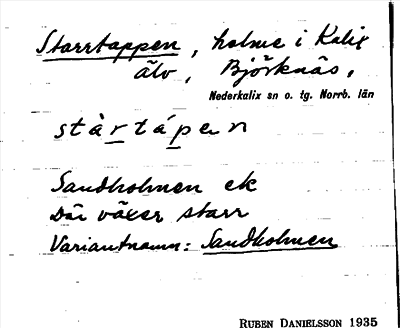 Starrtappen, holme i Kalix
älv, Björknäs,
Nederkalix sn o. tg. Norrb. län
stàrtápen
Sandholmen ek
Där växer starr
Variantnamn: Sandholmen
RUBEN DANIELSSON 1935